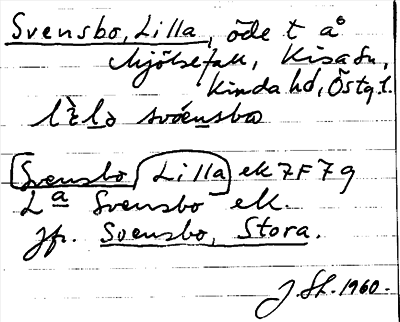 Svensbo, Lilla, öde t å
Mjölsefall, Kisa sn,
Kinda hd, Östg. l.
lɩ̀la svǽnsbo
Svensbo, Lilla ek 7F7g
La Svensbo ek.
Jfr. Svensbo, Stora.
J. Sh. 1960.